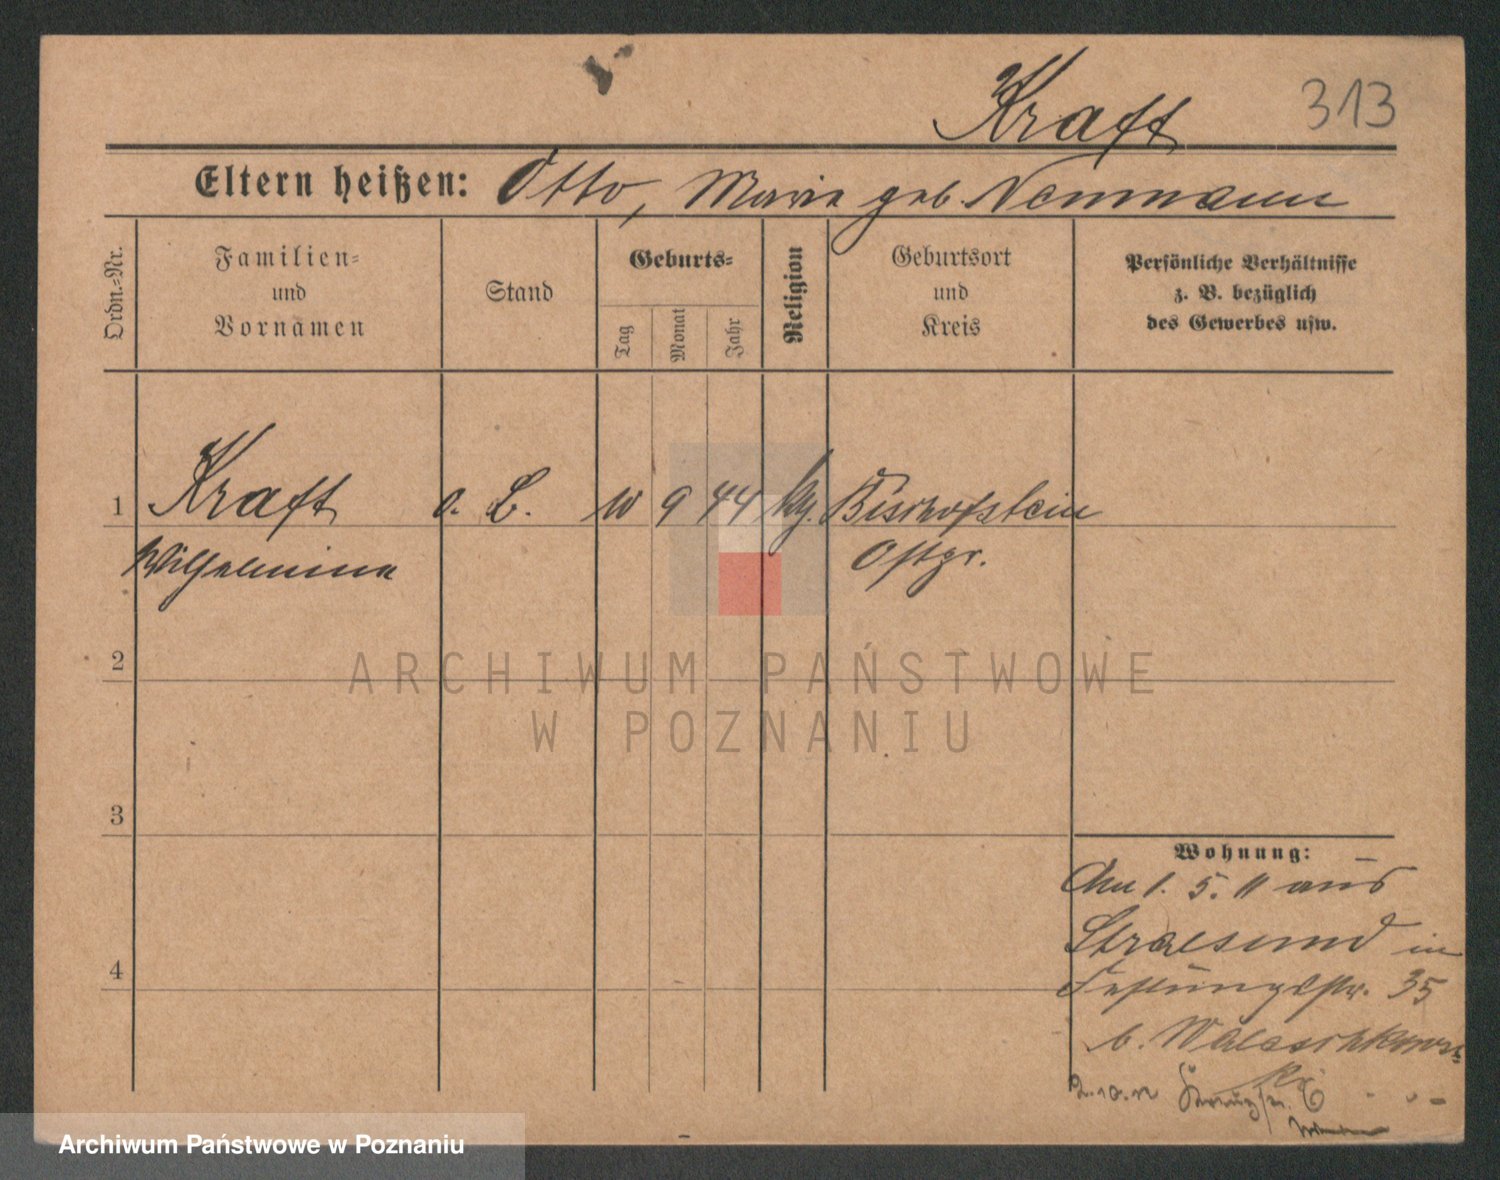 Kraft 313
Eltern heißen: Otto, Marie geb. Neumann
Ordn.-Nr.
Familien-
und
Vornamen
Stand
Geburts-
Tag
Monat
Jahr
Religion
Geburtsort
und
Kreis
Persönliche Verhältnisse
z. B. bezüglich
des Gewerbes usw.
1 Kraft o. B. 10 9 44 Bischofstein
Wilhelmine Ostpr.
2
3
4
ARCHIWUM PAŃSTWOWE
W POZNANIU
Wohnung:
Am 1. 5. 11 aus
Stralsund in
Festungsstr. 35
b.
2.10.12
Archiwum Państwowe w Poznaniu